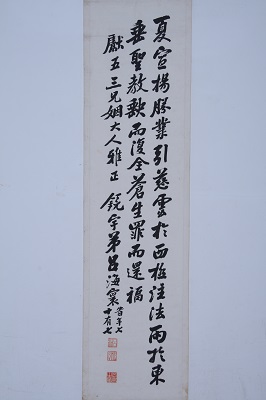 夏宣揚勝業引慈雲於西極注法雨於東
垂聖教缺而復全蒼生罪而還福
獻五三兄姻大人雅正 鏡宇弟呂海寰 時年七十有七